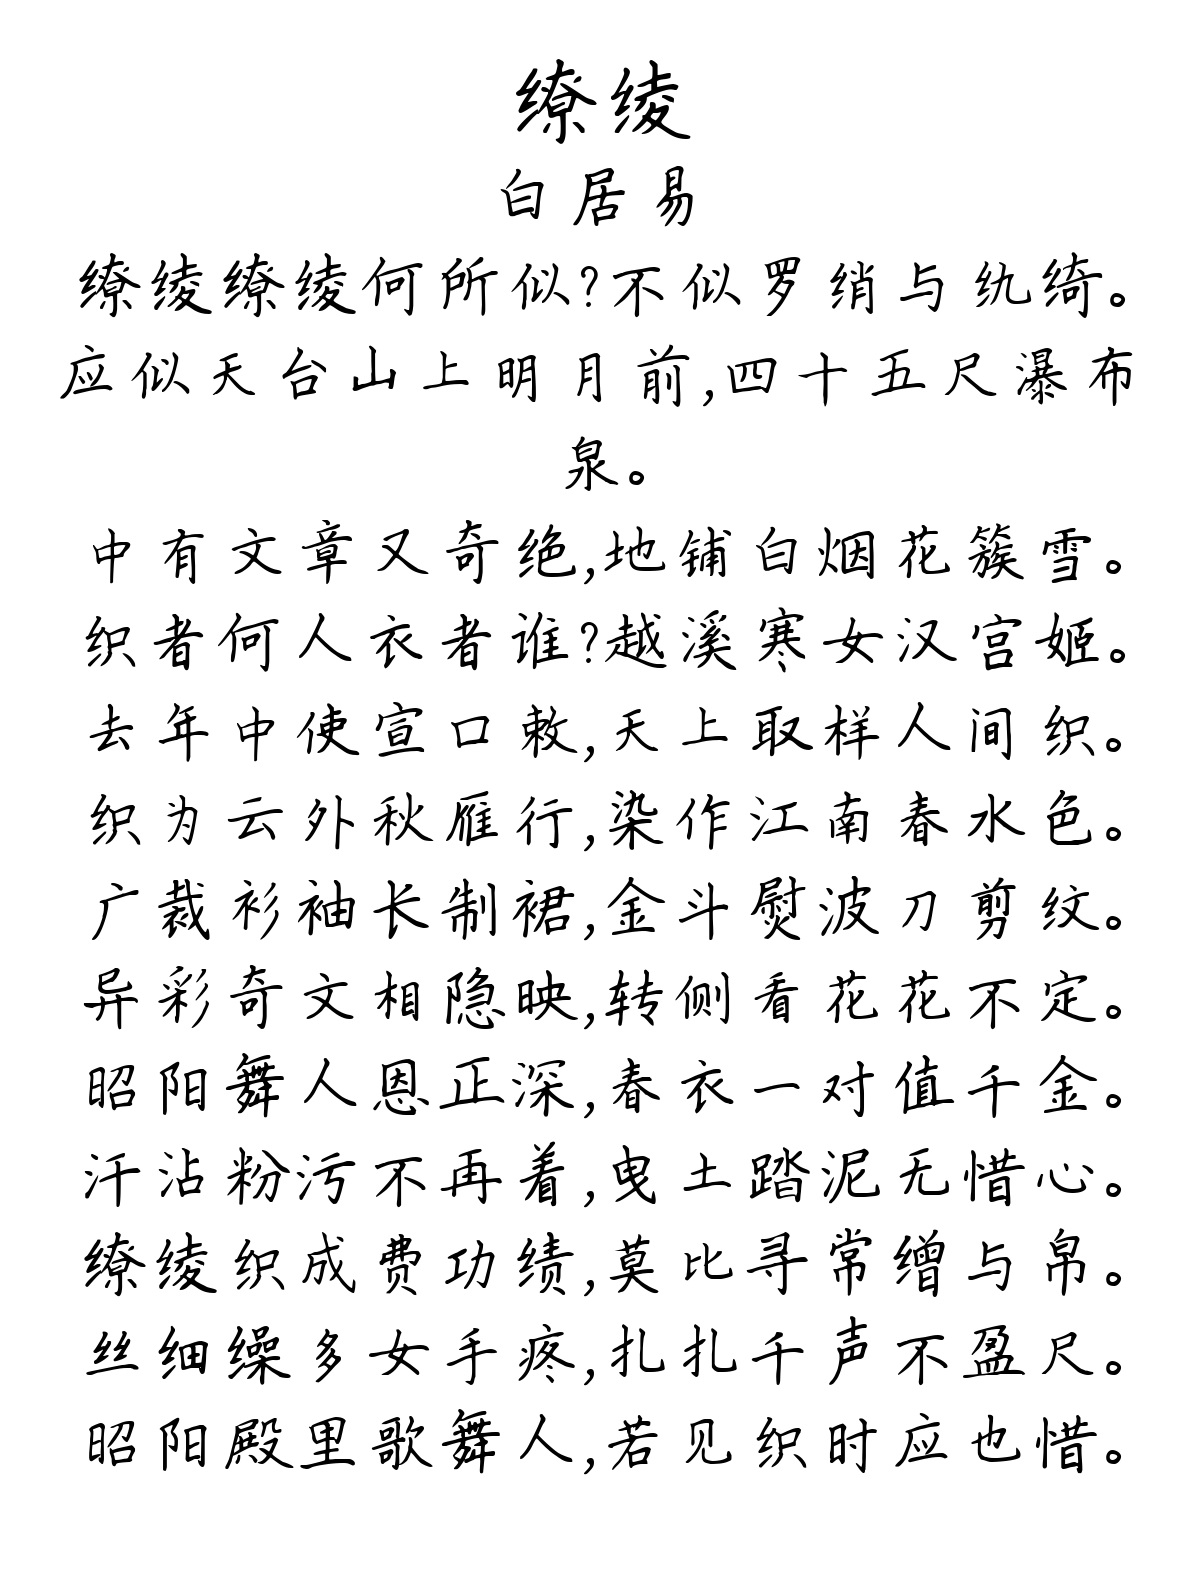 缭绫
白居易
缭绫缭绫何所似?不似罗绡与纨绮。
应似天台山上明月前,四十五尺瀑布
泉。
中有文章又奇绝,地铺白烟花簇雪。
织者何人衣者谁?越溪寒女汉宫姬。
去年中使宣口敕,天上取样人间织。
织为云外秋雁行,染作江南春水色。
广裁衫袖长制裙,金斗熨波刀剪纹。
异彩奇文相隐映,转侧看花花不定。
昭阳舞人恩正深,春衣一对值千金。
汗沾粉污不再着,曳土踏泥无惜心。
缭绫织成费功绩,莫比寻常缯与帛。
丝细缲多女手疼,扎扎千声不盈尺。
昭阳殿里歌舞人,若见织时应也惜。